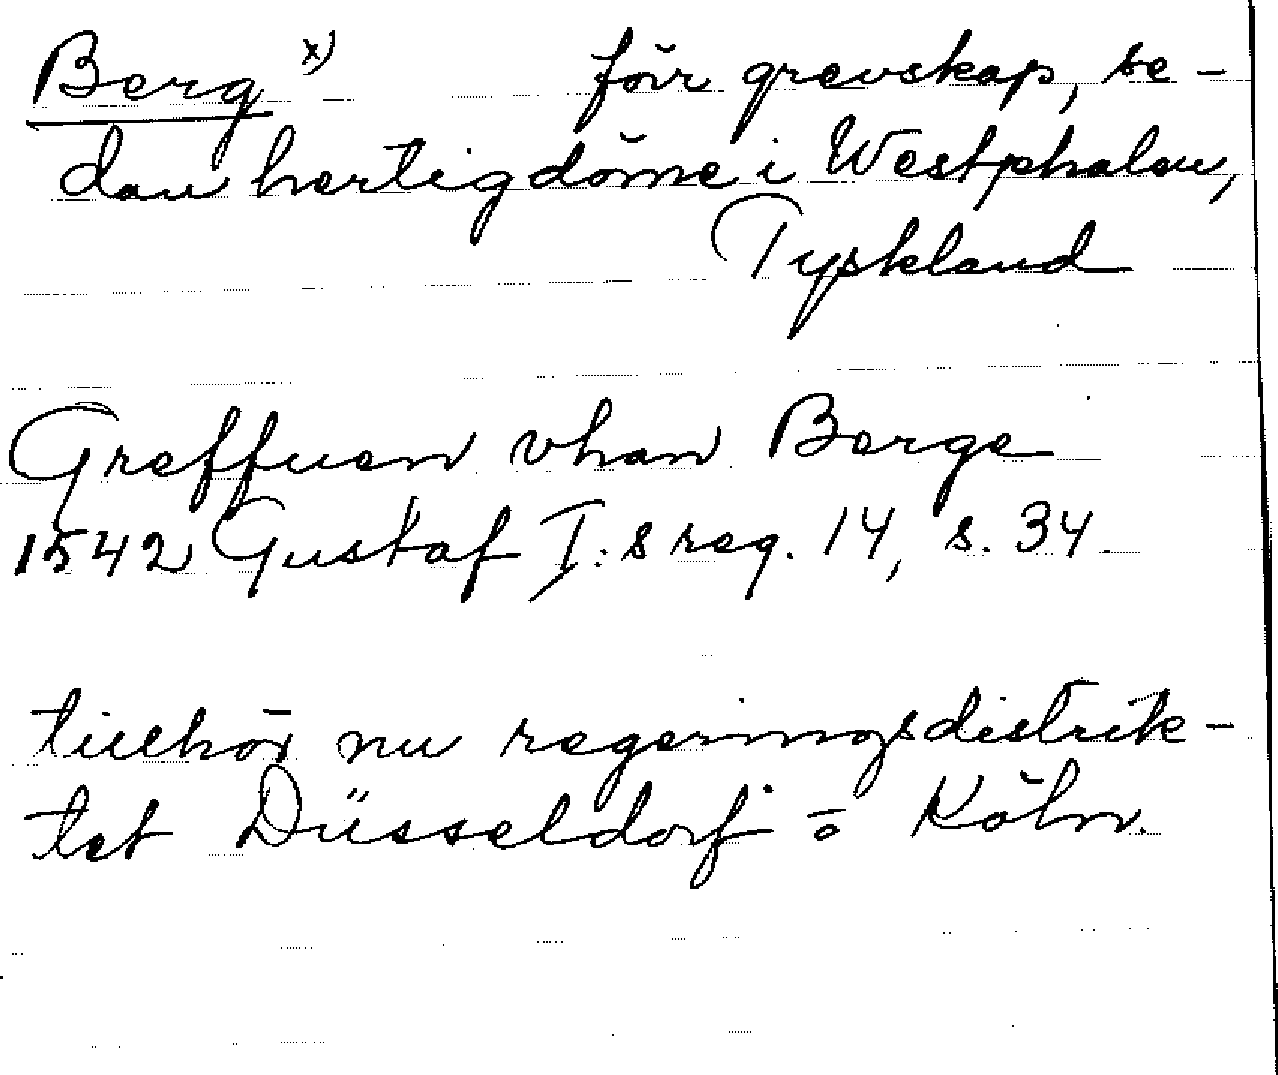 Berg x) förr grevskap, se-
dan hertigdöme i Westphalen,
Tyskland
Greffuen vhan Berge
1542 Gustaf I:s reg. 14, s. 34.
tillhör nu regeringsdistrik-
tet Düsseldorf o Köln.